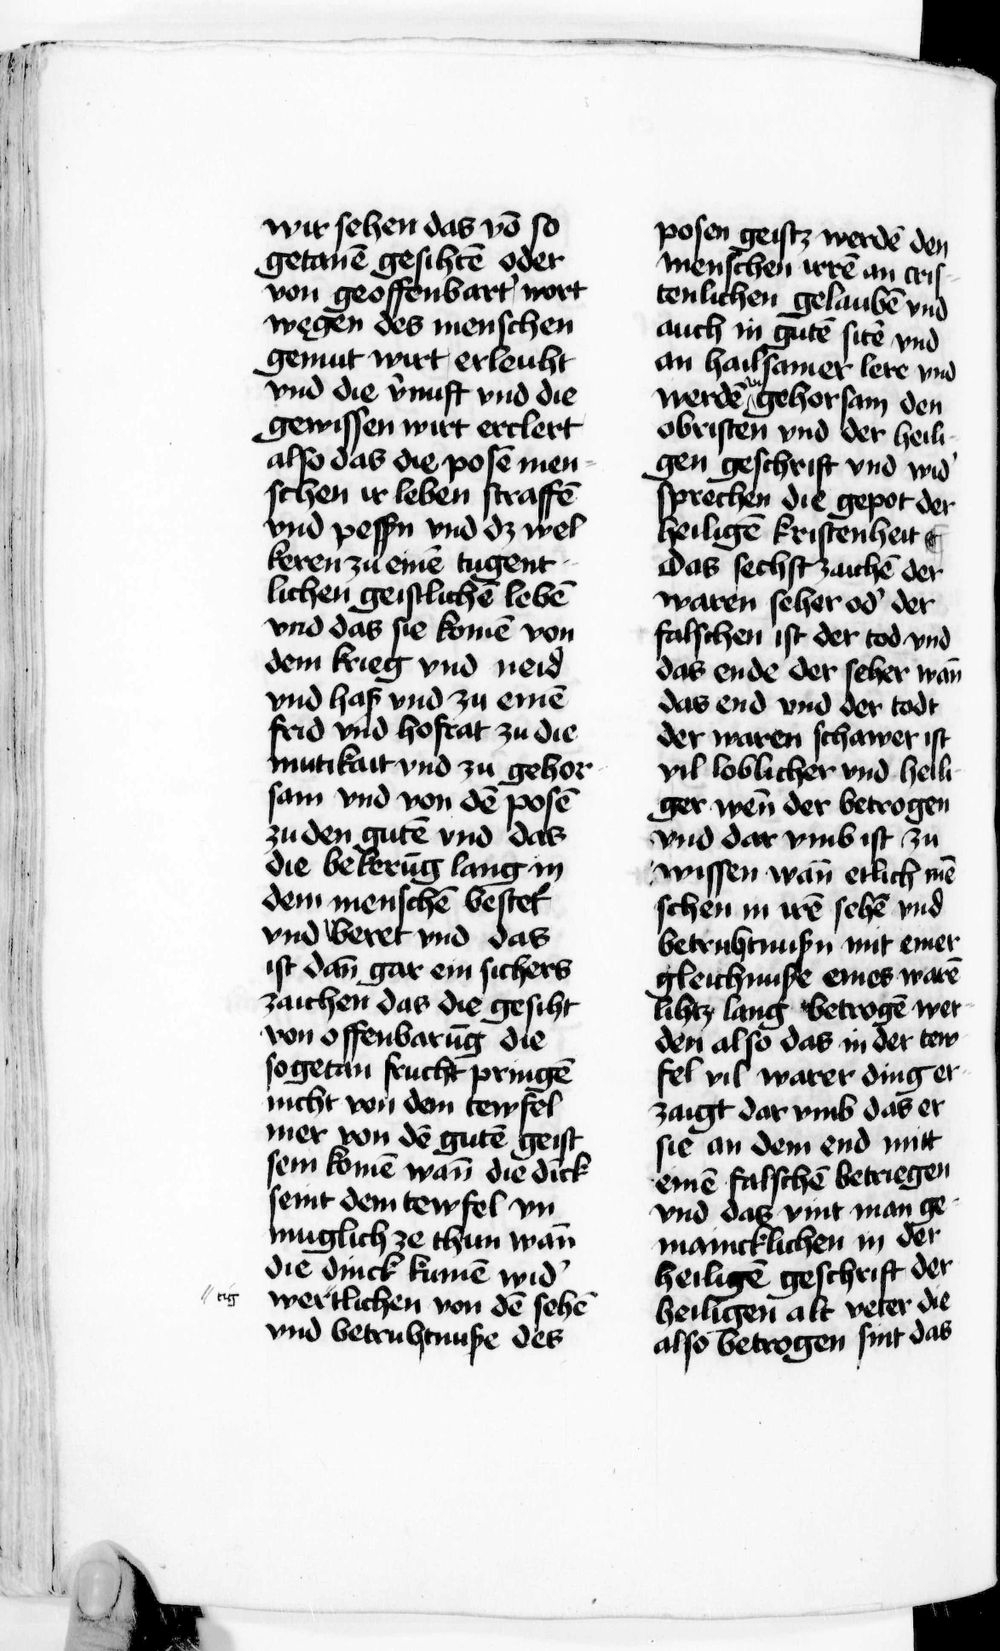 wir sehen das võ so
getanē gesihtē oder
von geoffenbart' wort
wegen des menschen
gemut wirt erleuht
vnd die v̉nuft vnd die
gewissen wirt erclert
also das die posē men-
schen ir leben straffē
vnd pessn̄ vnd dz wel
keren zu einē tugent-
lichen geistlichē lebē
vnd das sie komē von
dem krieg vnd neid
vnd haß vnd zu einē
frid vnd hofrat zu die
mutikait vnd zu gehor-
sam vnd von dē posē
zu den gutē vnd das
die bekerūg lang in
dem menschē bestet
vnd beret vnd das
ist dan̄ gar ein sichers
zaichen das die gesiht
von offenbarūg die
sogetan frucht pringē
nicht von dem tewfel
mer von dē gutē geist
sein komē wan̄ die dīck
seint dem tewfel vn
muglich ze thun wan̄
die dinck kumē wid'
// tig wertlichen von dē sehē
vnd betruhtnuße des
posen geistz werdē den
menschen irrē an cris-
tenlichen gelaubē vnd
auch in gutē sitē vnd
an hailsamer lere vnd
werdē vn gehorsam den
obristen vnd der heili-
gen geschrift vnd wid'
sprechen die gepot der
heiligē kristenheit ¶
Das sechst zaichē der
waren seher od' der
falschen ist der tod vnd
das ende der seher wan̄
das end vnd der todt
der waren schawer ist
vil loblicher vnd heili-
ger wen̄ der betrogen
vnd dar vmb ist zu
wissen wan̄ etlich mē
schen in irē sehē vnd
betruhtnußn mit einer
gleichnuße eines warē
lihtz lang betrogē wer-
den also das in der tew-
fel vil warer ding er-
zaigt dar vmb das er
sie an dem end mitt
einē falschē betriegen
vnd das vint man ge-
maincklichen in der
heiligē geschrift der
heiligen alt veter die
also betrogen sint das